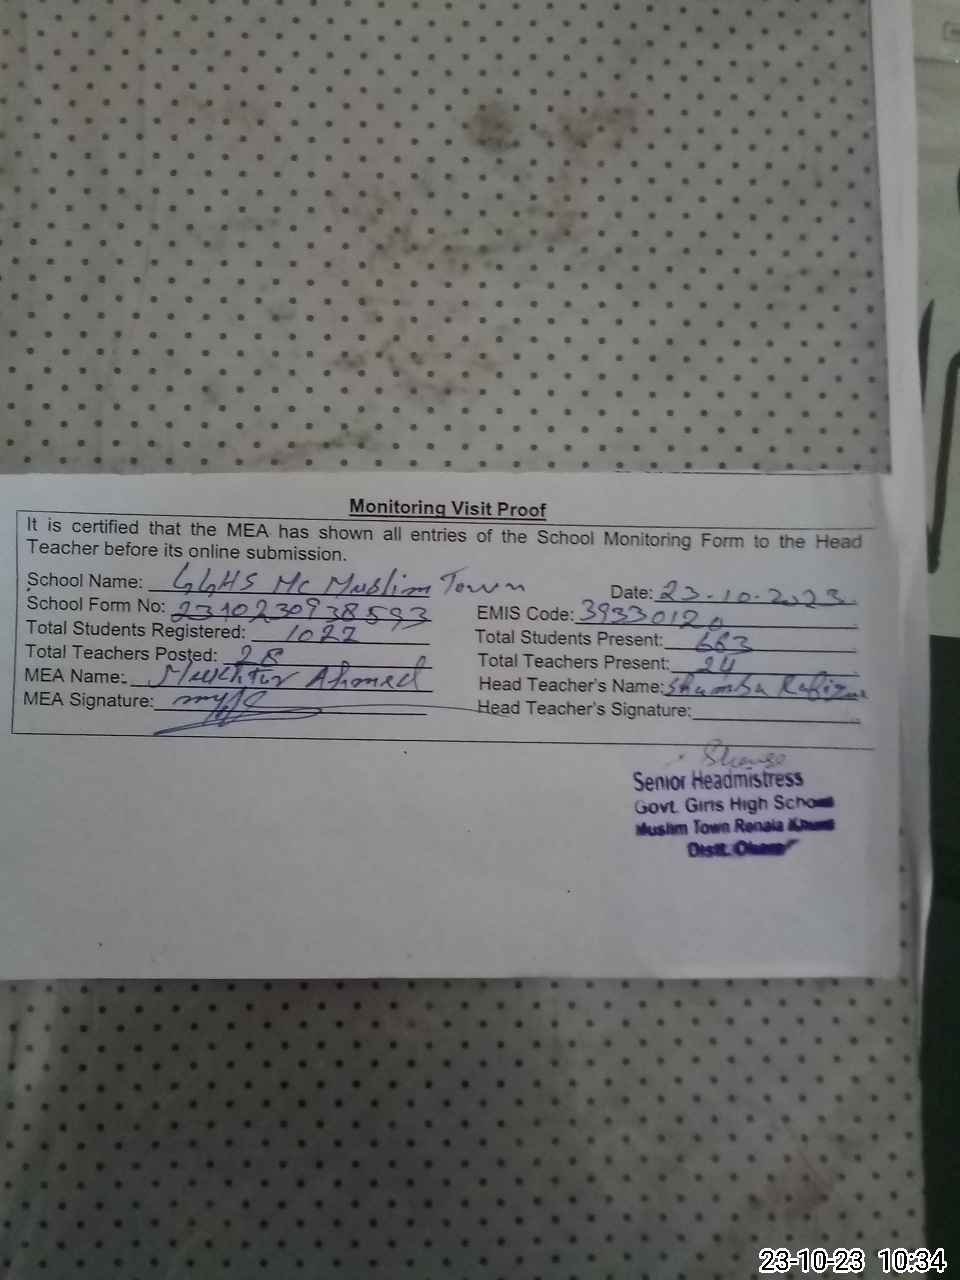 Monitoring Visit Proof
It is certified that the MEA has shown all entries of the School Monitoring Form to the Head
Teacher before its online submission.
School Name: GGHS MC Muslim Town Date: 23.10.2023
School Form No: 2310230938593 EMIS Code: 39330120
Total Students Registered: 1022 Total Students Present: 663
Total Teachers Posted: 28 Total Teachers Present: 24
MEA Name: Mukhtar Ahmed Head Teacher's Name:
MEA Signature: Head Teacher's Signature:
Senior Headmistress
Govt. Girls High School
Muslim Town Renala
Distt.
23-10-23 10:34